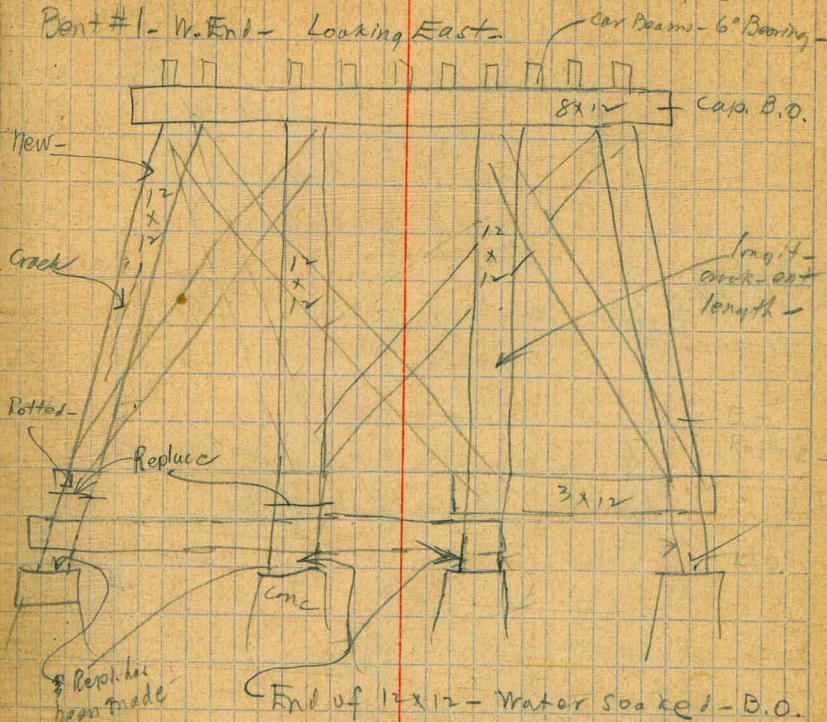 Bent #1 - W. End - Looking East -
Car Beams - 6" Bearing -
8 x 12
Cap. B.O.
New -
12
x
12
Crack
12
x
12
12
x
12
longit -
length -
Rotted -
Replace
3 x 12
Conc
Repl. has
been made
End of 12 x 12 - Water soaked - B.O.